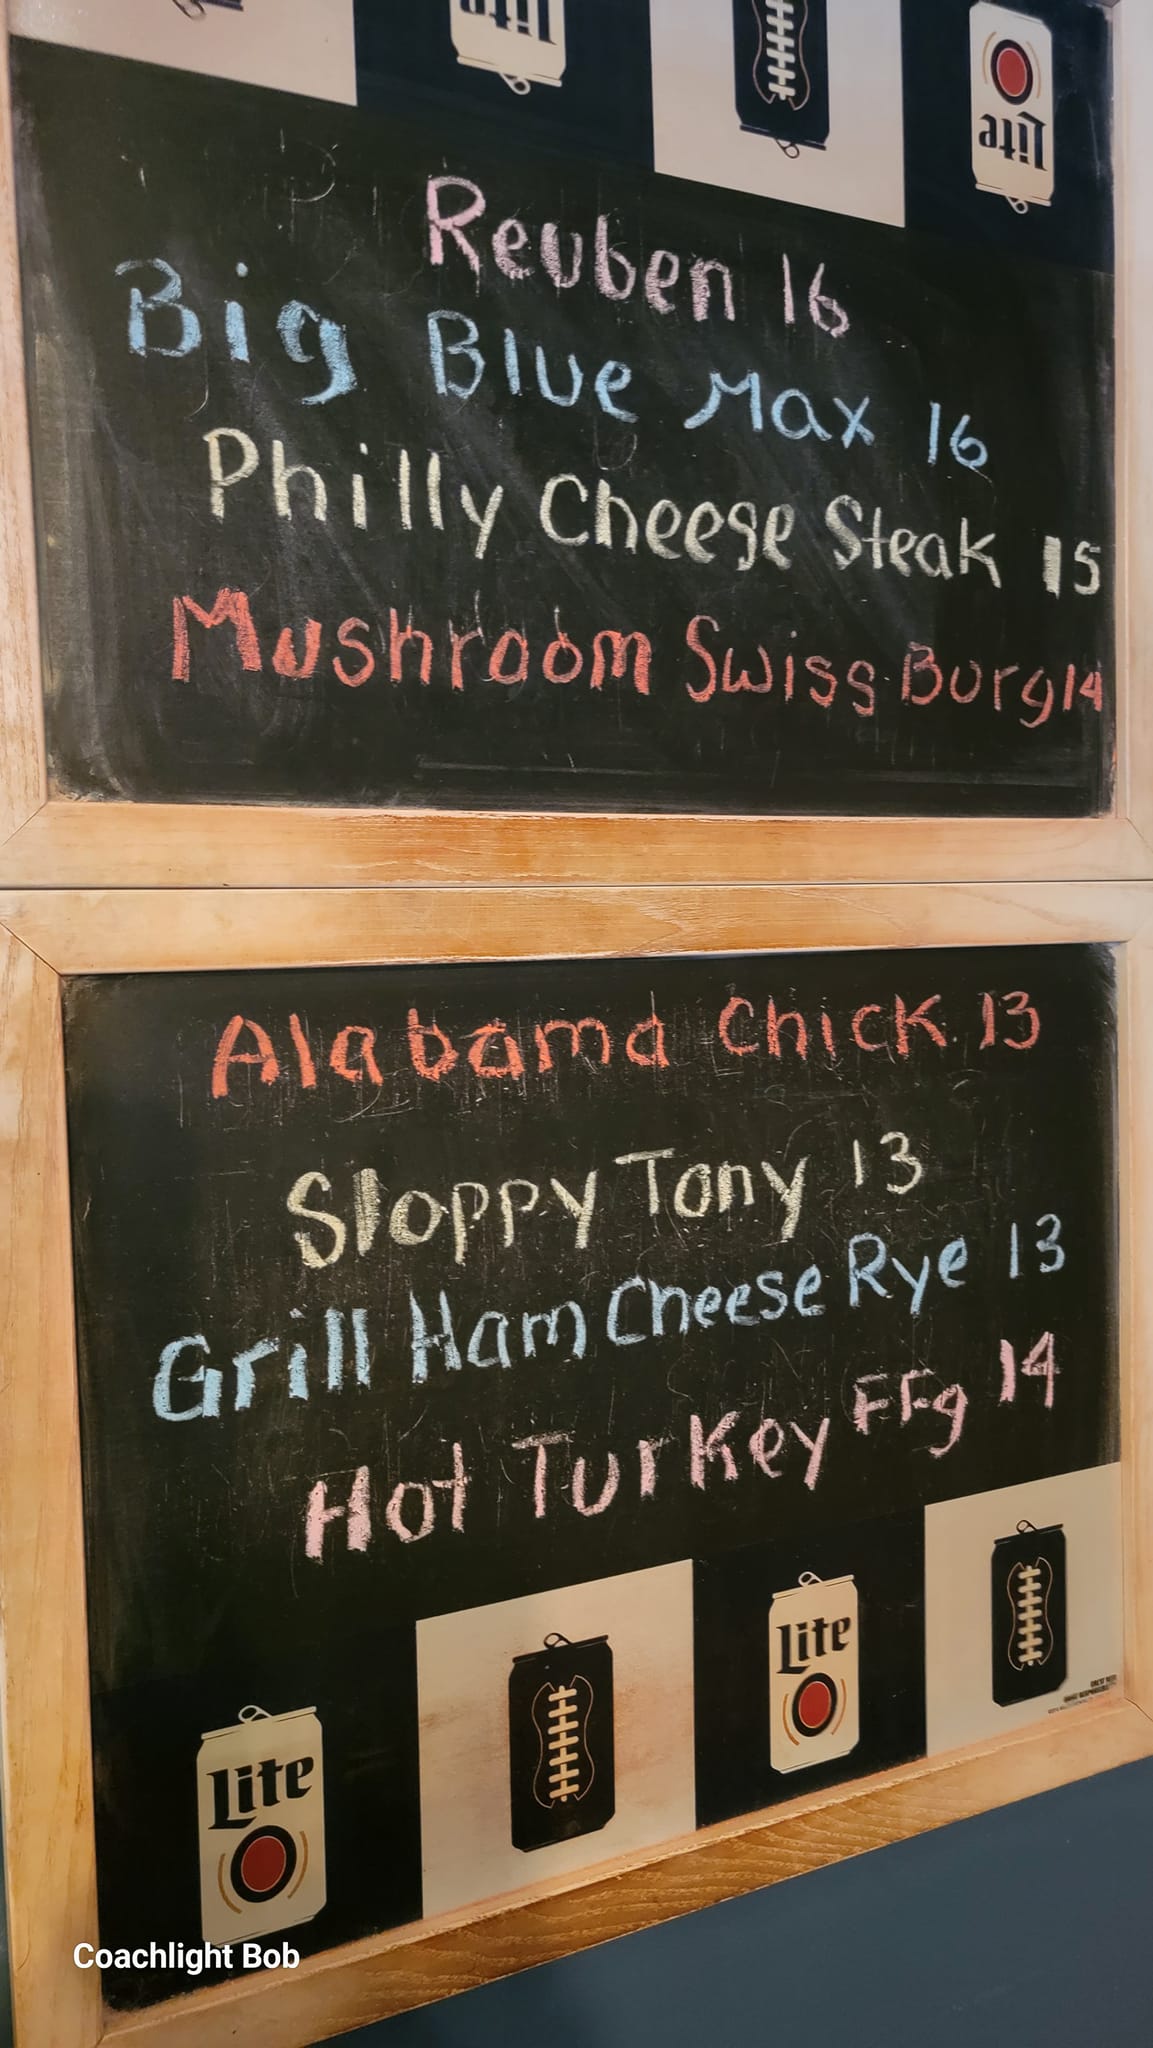 Lite
Lite
Reuben 16
Big Blue Max 16
Philly Cheese Steak 15
Mushroom Swiss Burg 14
Alabama Chick. 13
Sloppy Tony 13
Grill Ham Cheese Rye 13
Hot Turkey FFg 14
Lite
Lite
Coachlight Bob